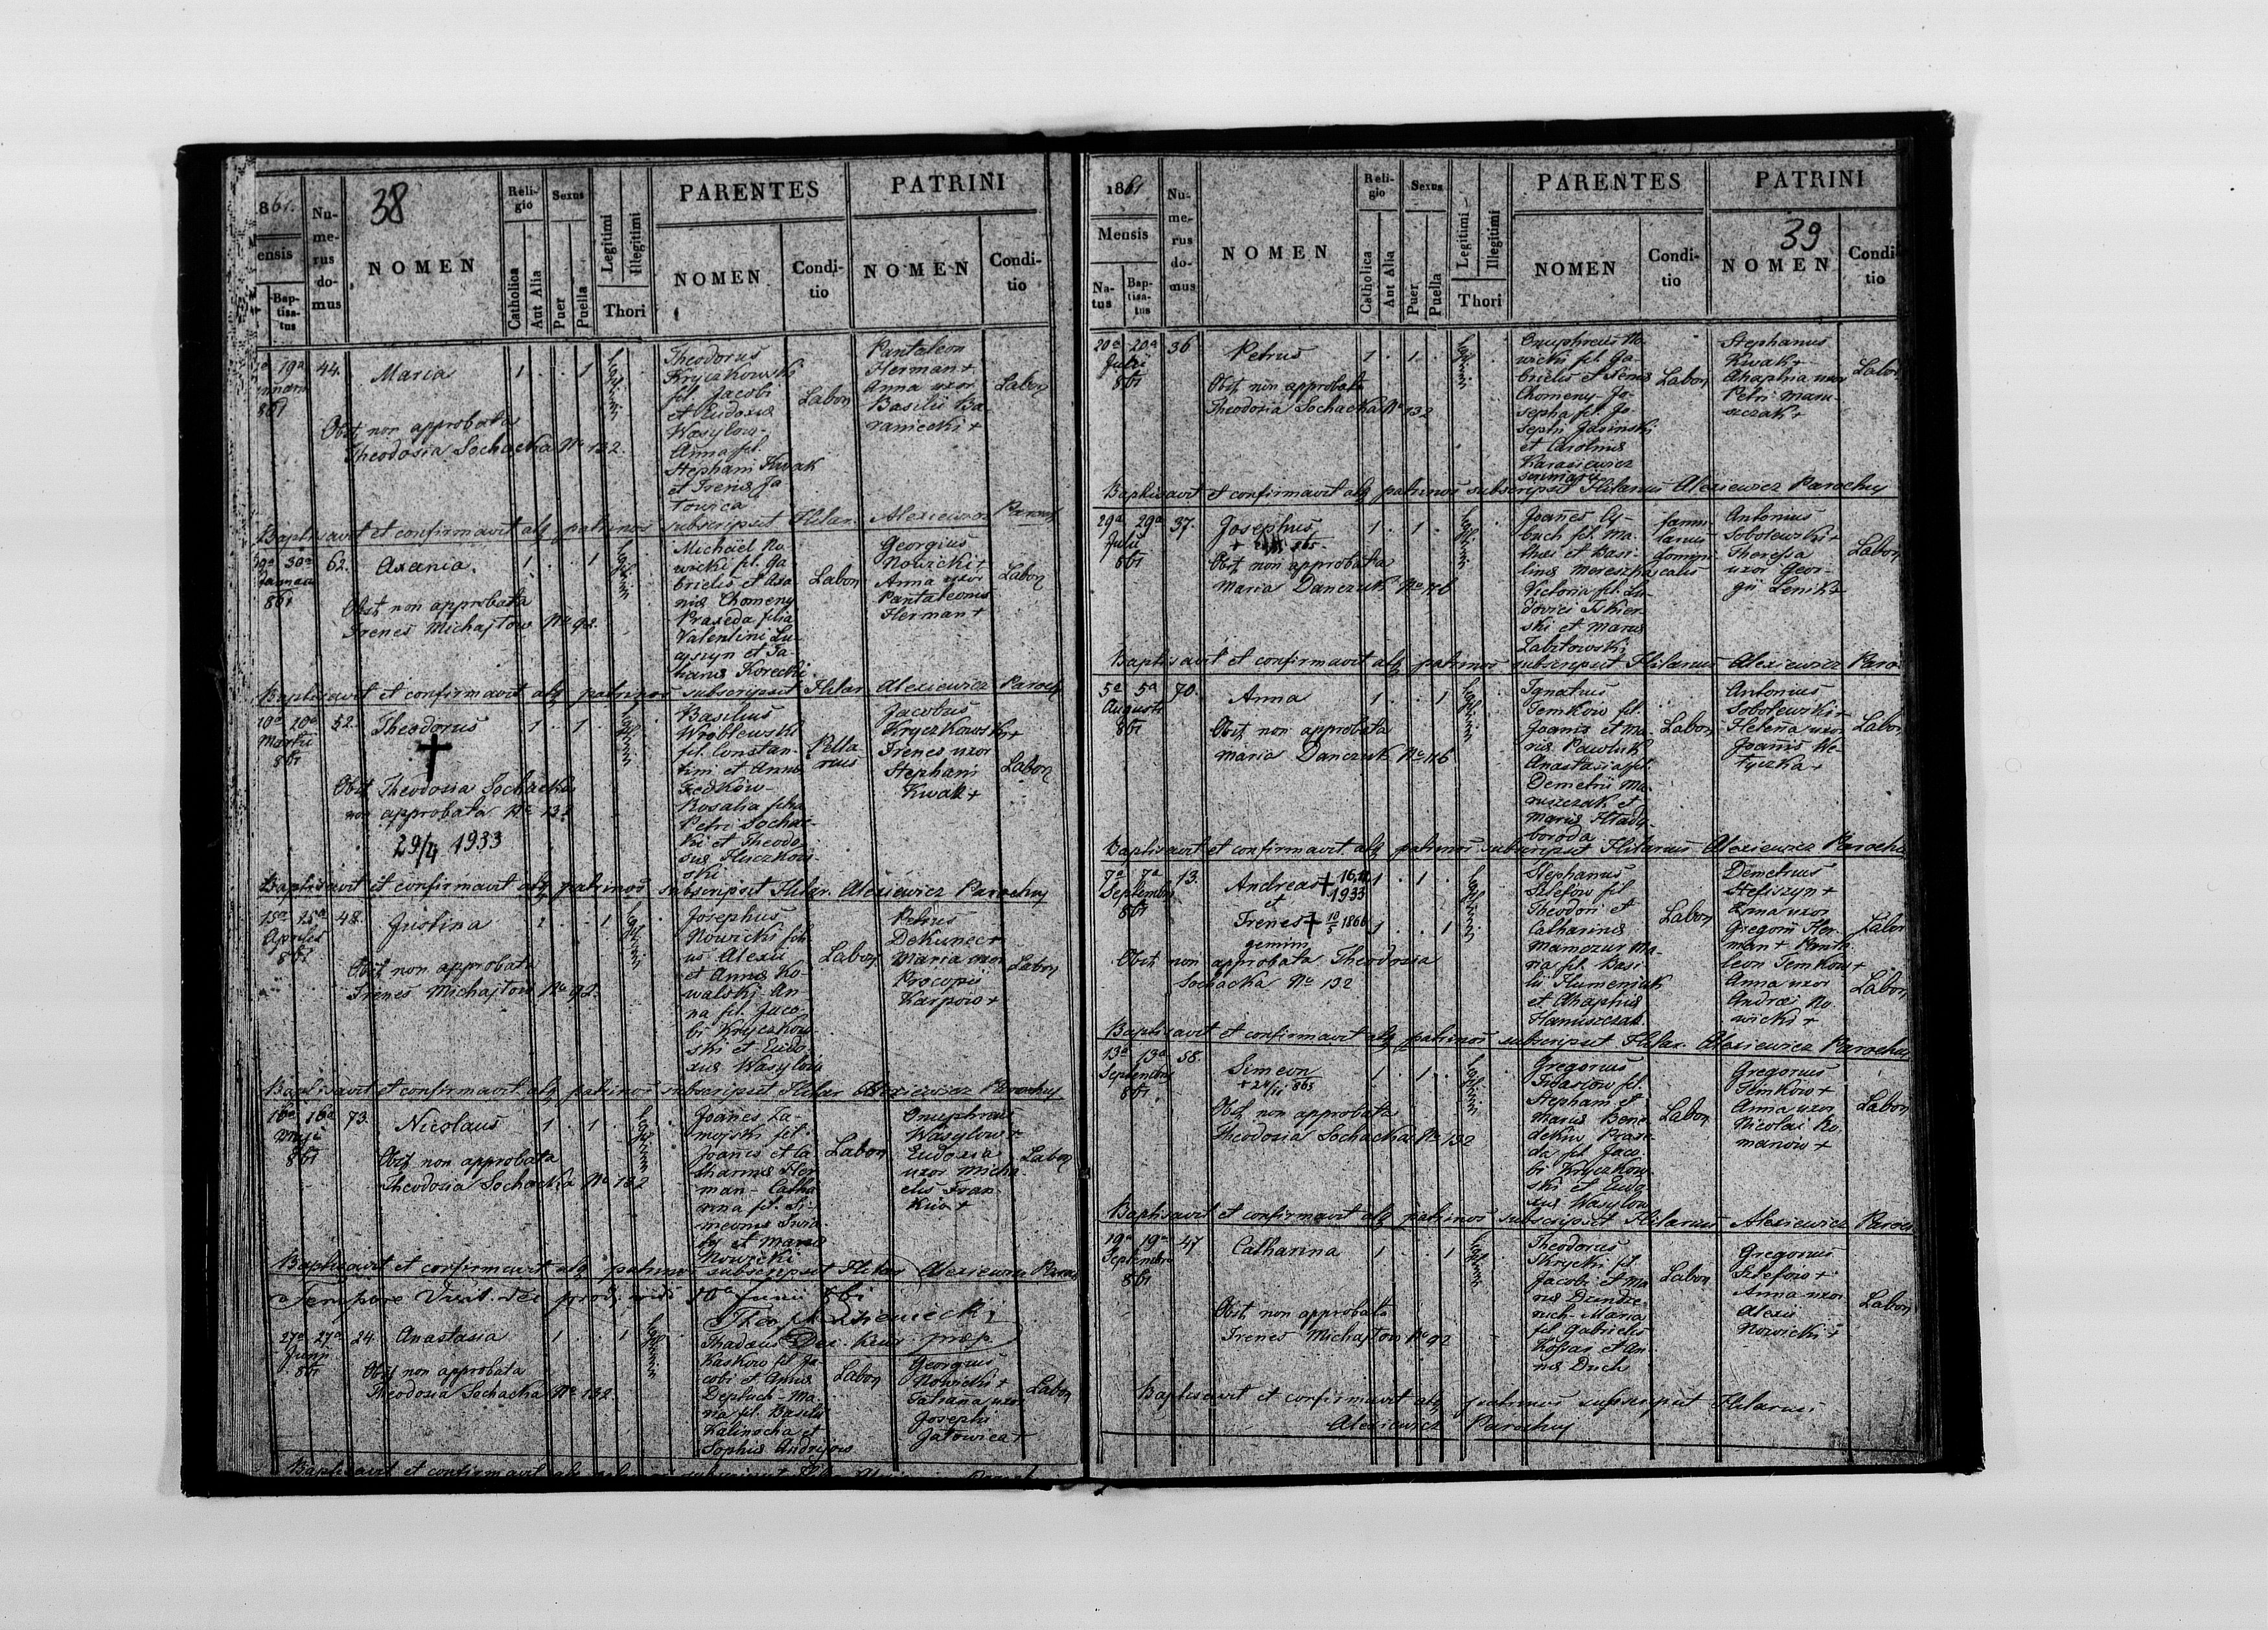 861.
Numerus domus
38
NOMEN
Religio
Catholica
Aut Alia
Sexus
Puer
Puella
Legitimi
Illegitimi
Thori
PARENTES
NOMEN
Conditio
PATRINI
NOMEN
Conditio
ensis
Baptisatus
19a
861
44.
Maria
1 . . 1
Obst. non approbata
Theodosia Sochacka No 132.
Theodorus
Kryczkowski
fil. Jacobi
et Eudoxiæ
Wasylow-
Anna fil.
Stephani Kwak
et Irenæ Ja
towica
Labor
Pantaleon
Herman +
Anna uxor
Basilii Ba-
raniecki +
Labor
Baptisavit et confirmavit atq patrinos subscripsit Hilar. Alexiewicz Paroch
30a
861
62.
Axenia.
1 . . 1
Obst. non approbata
Irenes Michajtow No 92.
Michael No
wicki fil. Ga
brielis et Axe
niæ Chomeny
Praxeda filia
Valentini Lu-
cyszyn et Ta
tianæ Korecki
Labor
Georgius
Nowicki +
Anna uxor
Pantaleonis
Herman +
Labor
Baptisavit et confirmavit atq patrinos subscripsit Hilar Alexiewicz Paroch
20a
Martii
861
52.
Theodorus
1 . 1 .
Obst. Theodosia Sochacka
non approbata No 132
29/4 1933
Basilius
Wroblewski
fil. Constan-
tini et Annæ
Fedkow-
Rosalia filia
Petri Sochac-
ki et Theodo-
siæ Hluczkow-
ski
Pella
rius
Jacobus
Kryczkowski +
Irenes uxor
Stephani
Kwak +
Labor
Baptisavit et confirmavit atq patrinos subscripsit Hilar. Alexiewicz Parochus
15a 25a
Aprilis
861
48.
Justina
1 . . 1
Obst. non approbata
Irenes Michajtow No 92.
Josephus
Nowicki fili
us Alexii
et Annæ Ko-
walski- An
na fil. Jaco-
bi Kryczkow
ski et Eudo-
xiæ Wasylow
Labor
Petrus
Dekunec +
Maria uxor
Procopii
Karpow +
Labor
Baptisavit et confirmavit atq patrinos subscripsit Hilar Alexiewicz Parochus
16a 16a
Maji
861
73.
Nicolaus
1 . 1 .
Obst. non approbata
Theodosia Sochacka No 132
Joanes Za-
mojski fil.
Joanis et Ca
tharinæ Her
man- Catha
rina fil. Si-
meonis
et Mariæ
Nowicki
Labor
Onuphreus
Wasylow +
Eudoxia
uxor Micha
elis Fran-
kiw +
Labor
Baptisavit et confirmavit atq patrinos subscripsit Hilar Alexiewicz Paroch
Tempore Visit. 10a Junii 861
27a 27a
Junii
861
24.
Anastasia
1 . . 1
Obst. non approbata
Theodosia Sochacka No 132.
Thadæus
Kaskow fil Ja-
cobi et Annæ
Depluch- Ma-
ria fil. Basilii
Kalinocha et
Sophiæ Andrijow
Labor
Georgius
Nowicki +
Tatiana uxor
Josephi
Jatowica +
Labor
Baptisavit et confirmavit atq
1861
Mensis
Natus
Baptisatus
Numerus domus
NOMEN
Religio
Catholica
Aut Alia
Sexus
Puer
Puella
Legitimi
Illegitimi
Thori
PARENTES
NOMEN
Conditio
PATRINI
39
NOMEN
Conditio
20a 20a
Julii
861
36
Petrus
1 . 1 .
Obst. non approbata
Theodosia Sochacka No 132
Onuphreus No-
wicki fil. Ga-
brielis et Xeniæ
Chomeny- Jo-
sepha fil. Jo-
sephi Jasinski
et Carolinæ
Karasiewicz
Labor
Stephanus
Kwak +
Ahaphia uxor
Petri Maru-
szczak +
Labor
Baptisavit et confirmavit atq patrinos subscripsit Hilarius Alexiewicz Parochus
29a 29a
Julii
861
37.
Josephus
1 . 1 .
Obst. non approbata
Maria Danczuk No 116
Joanes Cy-
buch fil. Ma-
thiæ et Basi-
linæ Mereszka
Victoria fil. Lu-
dovici Iskier-
ski et Mariæ
Zablotowski
famu-
larus
domini-
calis
Antonius
Sobolewski +
Theressa
uxor Geor-
gii Lenik +
Labor
Baptisavit et confirmavit atq patrinos subscripsit Hilarius Alexiewicz Paro
5a 5a
Augusti
861
70.
Anna
1 . . 1
Obst. non approbata
Maria Danczuk No 116
Ignatius
Temkow fil.
Joanis et Ma-
riæ Pawluk
Anastasia fil.
Demetrii Ma-
ruszczak et
Mariæ Hlady-
boroda
Labor
Antonius
Sobolewski +
Helena uxor
Joanis
Labor
Baptisavit et confirmavit atq patrinos subscripsit Hilarius Alexiewicz Parochus
7a 7a
Septembris
861
13.
Andreas + 16.II 1933
1 . 1 .
et
Irenes + 10/5 1866
1 . . 1
gemini
Obst. non approbata Theodosia
Sochacka No 132
Stephanus
Szlefow fil.
Theodori et
Catharinæ
Mamczur Ma-
ria fil. Basi-
lii Humeniuk
et Ahaphiæ
Hanuszczak.
Labor
Demetrius
Stefiszyn +
Anna uxor
Gregorii Her-
man + Panta-
leon Temkow +
Anna uxor
Andreæ No-
wicki +
Labor
Labor
Baptisavit et confirmavit atq patrinos subscripsit Hilar. Alexiewicz Parochus
13a 13a
Septembris
861
58.
Simeon
1 . 1 .
Obst. non approbata
Theodosia Sochacka No 132
Gregorius
Iwasiow fil.
Stephani et
Mariæ Bene-
dekiw Praxe-
da fil. Jaco-
bi Kryczkow-
ski et Eudo-
xiæ Wasylow
Labor
Gregorius
Temkow +
Anna uxor
Nicolai Ro-
manow +
Labor
Baptisavit et confirmavit atq patrinos subscripsit Hilarius Alexiewicz Paroch
19a 19a
Septembris
861
47
Catharina
1 . . 1
Obst. non approbata
Irenes Michajtow No 92
Theodorus
Skrycki fil
Jacobi et Ma
riæ Dzindze-
ruch Maria
fil. Gabrielis
Kossar et An-
næ Duch
Labor
Gregorius
Szlefow +
Anna uxor
Alexii
Nowicki +
Labor
Baptisavit et confirmavit atq patrinos subscripsit Hilarius
Alexiewicz Parochus